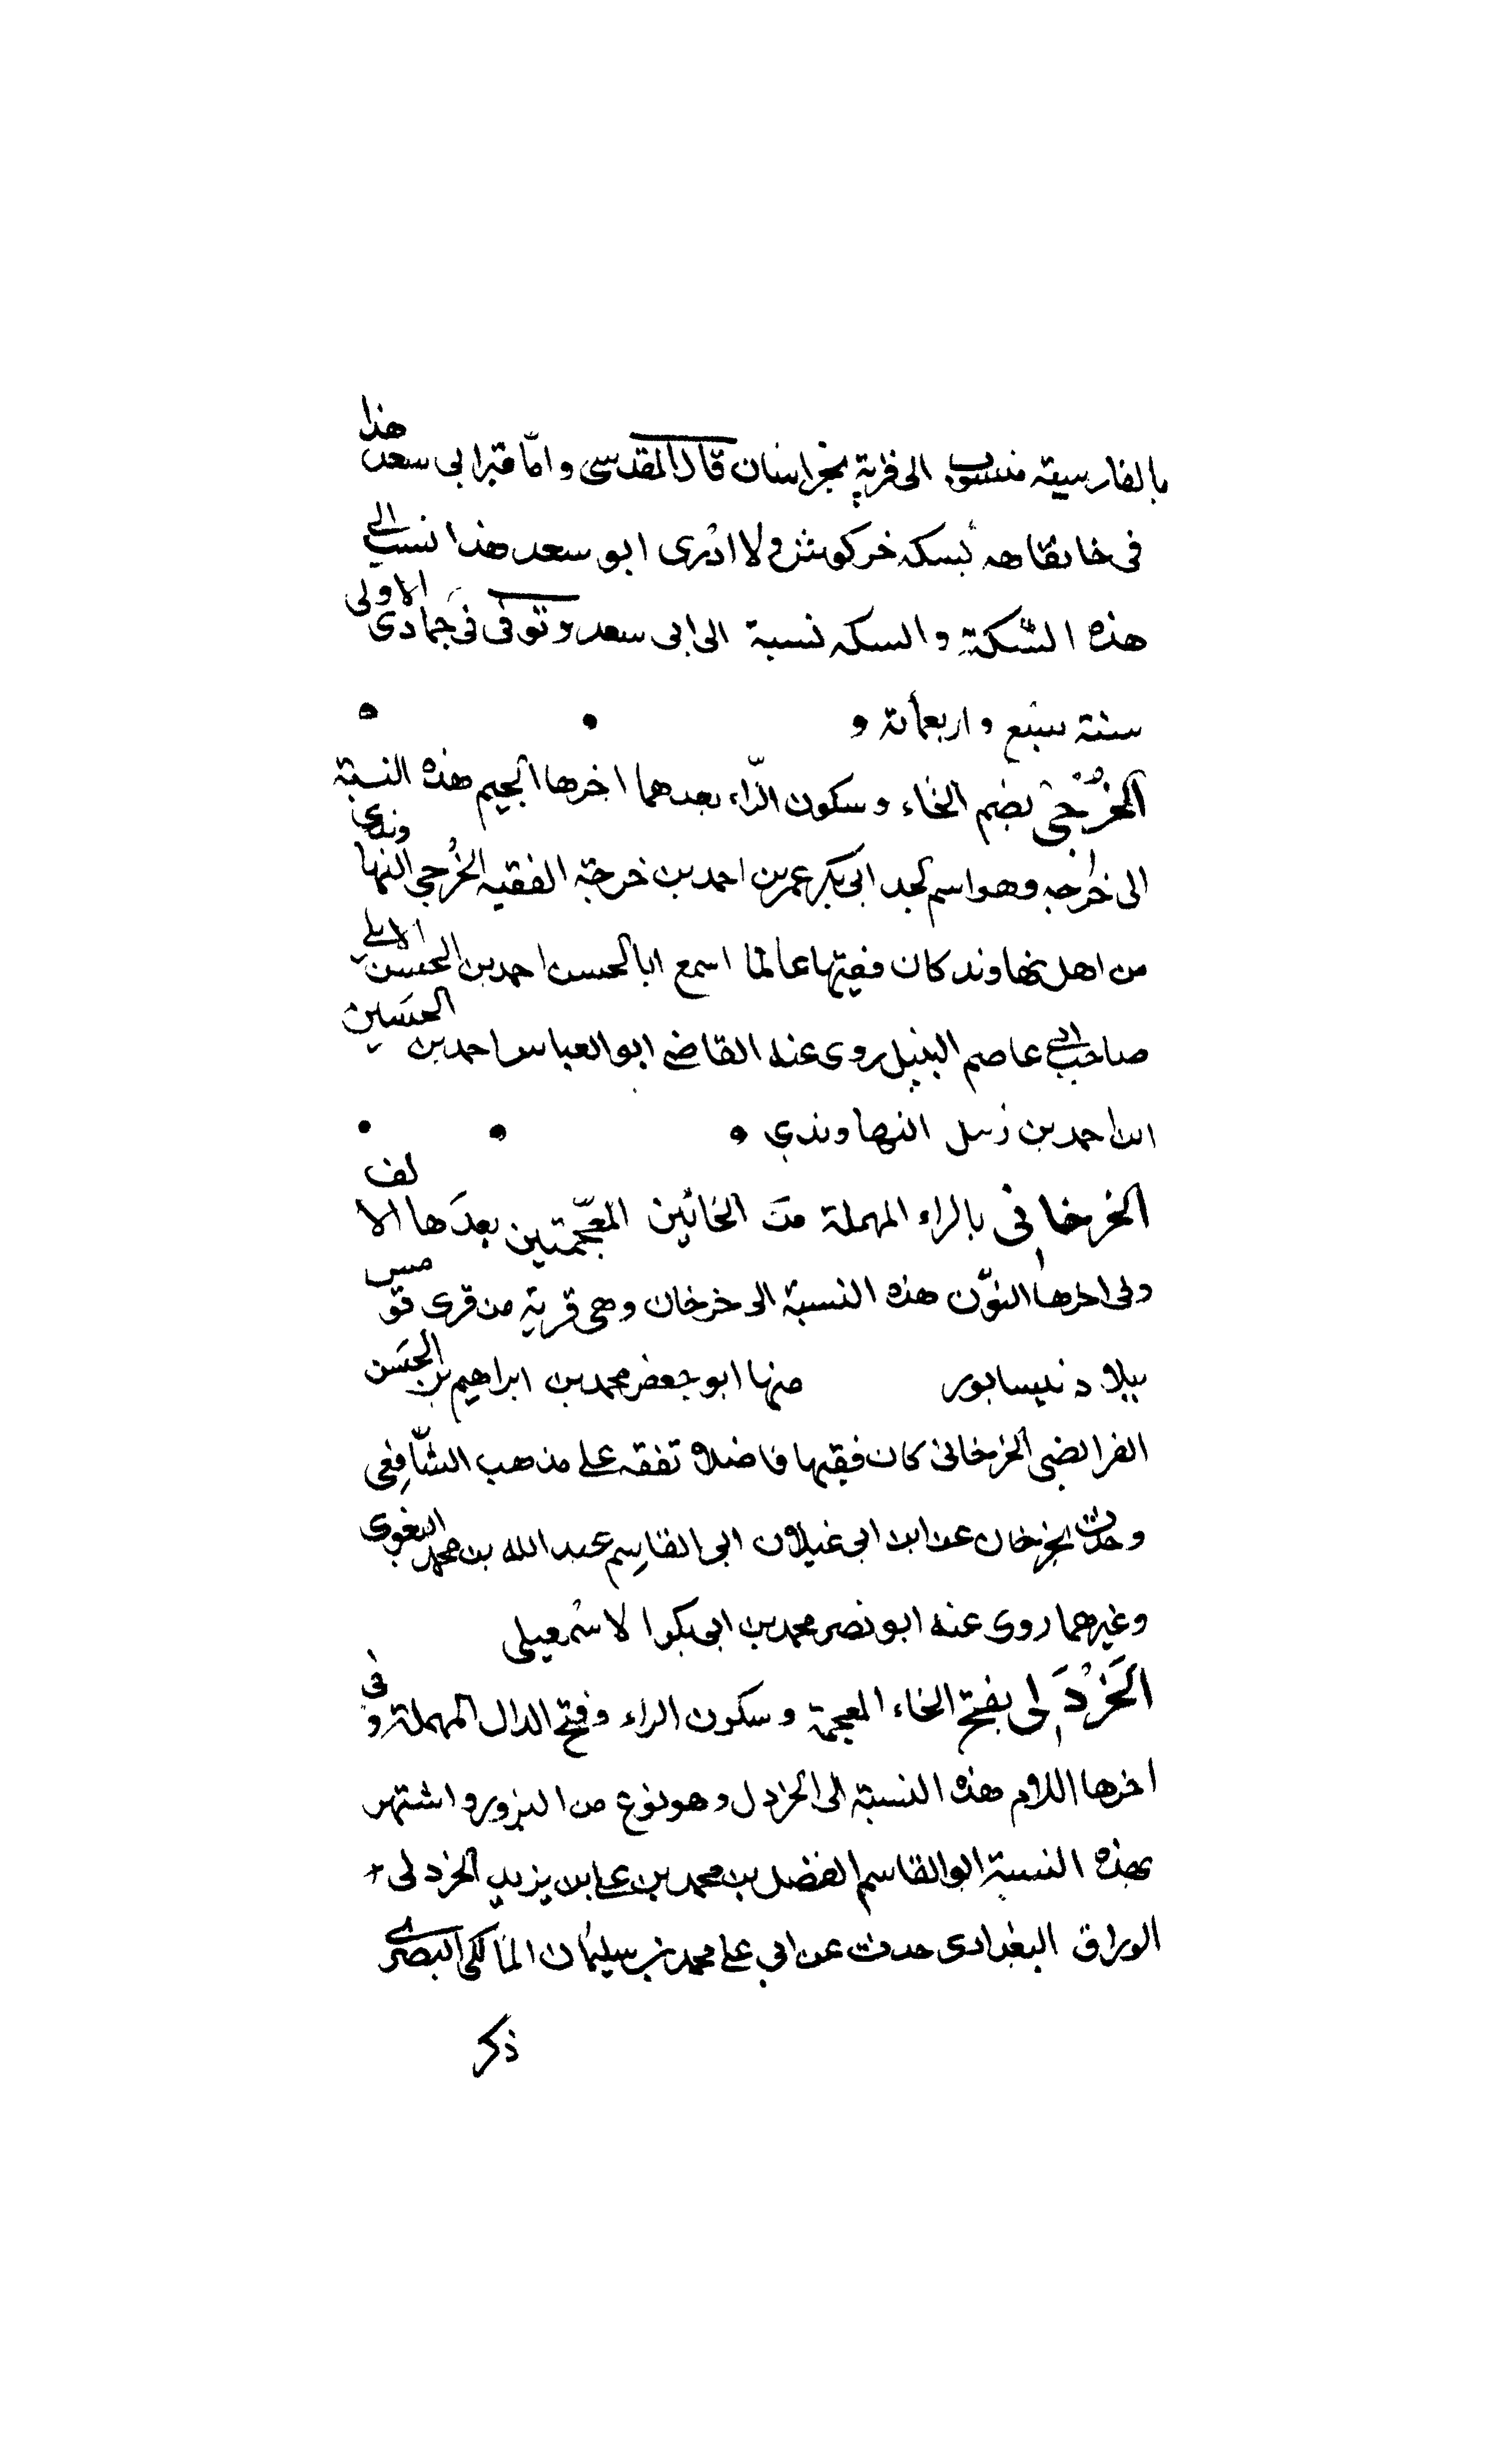 بالفارسية منسوب الى قرية بخراسان قال المقدسى وامّا قبر ابى سعد هذا
فى خانقاهه بسكه خركوش ولا ادرى ابو سعد هذا نسب الى
هذه السّكة والسكه نسبة الى ابى سعد وتوفى فى جمادى الاولى
سنة سبع واربعمائة و
الخُرْجىْ بضم الخاء وسكون الرّاء بعدهما اخرها الجيم هذه النسبة
الى خرجه وهو اسم لجد ابى بكر عمر بن احمد بن خرجة الفقيه الخُرجى النهاوندى
من اهل نهاوند كان فقيها عالما اسمع ابا الحسن احمد بن الحسن الايلى
صاحب ابى عاصم النبيل روى عنه القاضى ابو العباس احمد بن الحسين
احمد بن زنبيل النهاوندي
الخرخانى بالراء المهملة من الخائين المعجمتين بعدها الالف
وفى اخرها النوّن هذه النسبة الى خرخان وهى قرية من قرى قومس
ببلاد نيسابور منها ابو جعفر محمد بن ابراهيم بن الحسن
الفرائضى الخرخانى كان فقيها فاضلا تفقه على مذهب الشّافِعى
وحدث بخرخان عن ابن ابى غيلان ابى القاسِم عبد الله بن محمد البغوى
وغيرهما روى عنه ابو نصر محمد بن ابى بكر الاسْمعيلى
الخَرْدَلِى بفتح الخاء المعجمة وسكون الراء وفتح الدال المهملة وفى
اخرها اللام هذه النسبة الى الخردل وهو نوع من البزور واشتهر
بهذه النسبة ابو القاسم الفضل بن محمد بن على بن يزيد الخردلى
الوراق البغدادى حدث عن ابي على محمد بن سليمان المالكى البصرى
ذكر